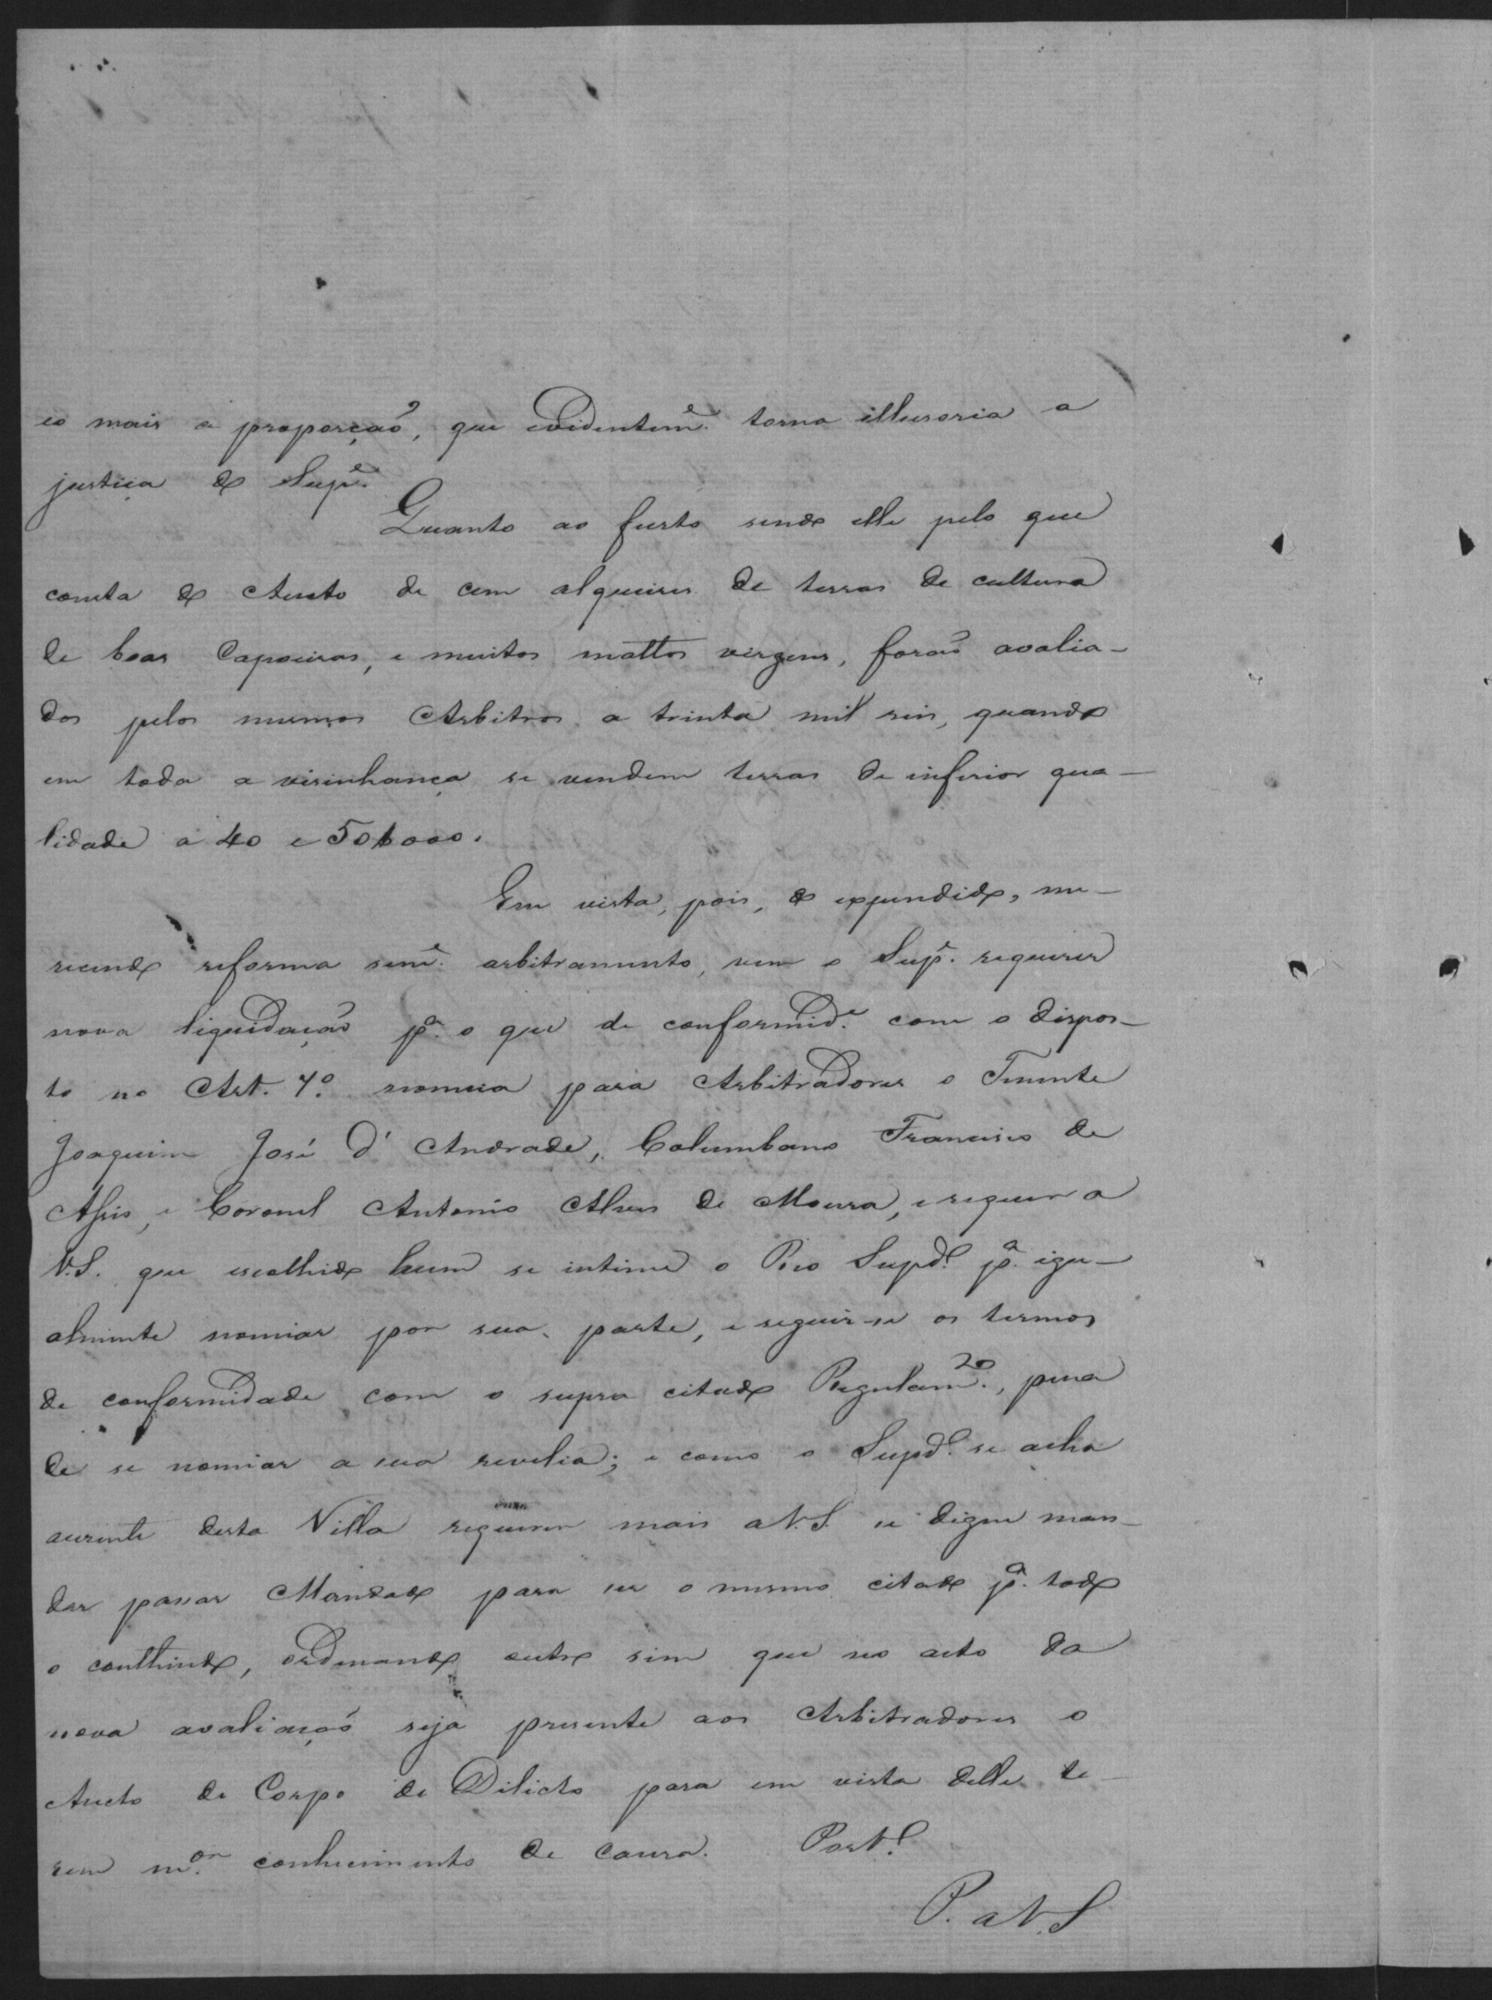 co mais a proporçaõ, que evidentem.e torna illusoria a
justiça do Sup.e
Quanto ao furto sendo elle pelo que
consta do Aucto de cem alqueires de terras de cultura
de boas Capoeiras, e muitos mattos virgens, foraõ avalia-
dos pelos mesmos Arbitros a trinta mil reis, quando
em toda a visinhança se vendem terras de inferior qua-
lidade a 40 e 50$000.
Em vista, pois, do expendido, me-
recendo reforma sem.e arbitramento, vem o Sup.e requerer
nova liquidaçaõ p.a o que de conformid.e com o dispos-
to no Art. 7.o nomeia para Arbitradores o Tenente
Joaquim José d'Andrade, Columbano Francisco de
Assis, e Coronel Antonio Alves de Moura, e requer a
V.S. que escolhido hum se intime o Reo Supd.o p.a igu-
almente nomiar por sua parte, e seguir-se os termos
de conformidade com o supra citado Regulam.to, pena
de se nomiar a sua revelia; e como o Supd.o se acha
ausente desta Villa requerer mais a V.S. se digne man-
dar passar Mandado para ser o mesmo citado p.a todo
o conthindo, ordenando outro sim que no acto da
nova avaliaçaõ seja presente aos Arbitradores o
Aucto de Corpo de Dilicto para em vista delle te-
rem m.or conhecimento de causa. Port.o
P. a V.S